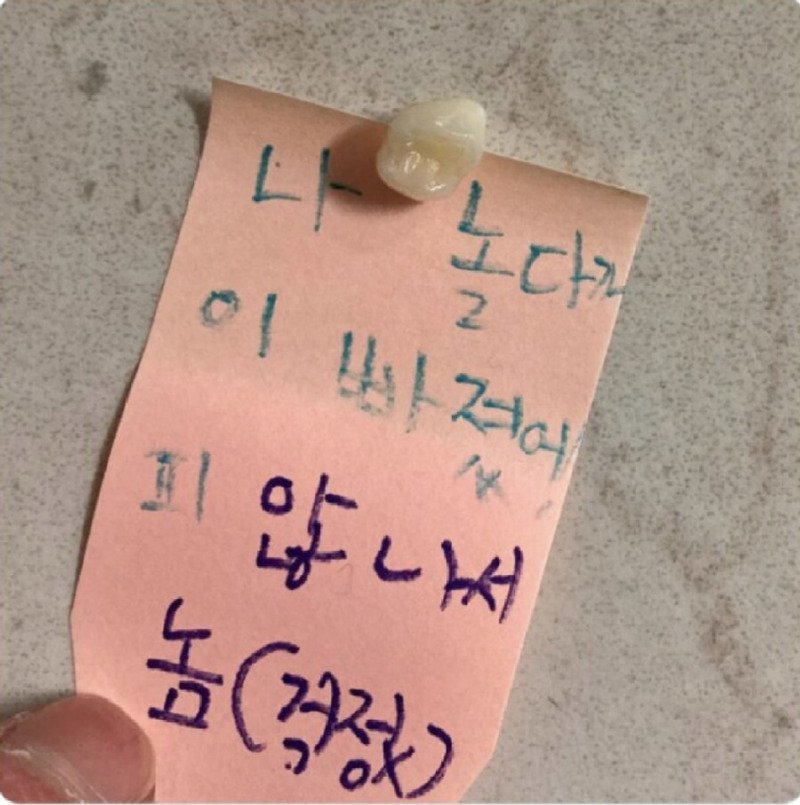 나 놀다가
이 빠졌어
피 않 나서
놈(걱정X)